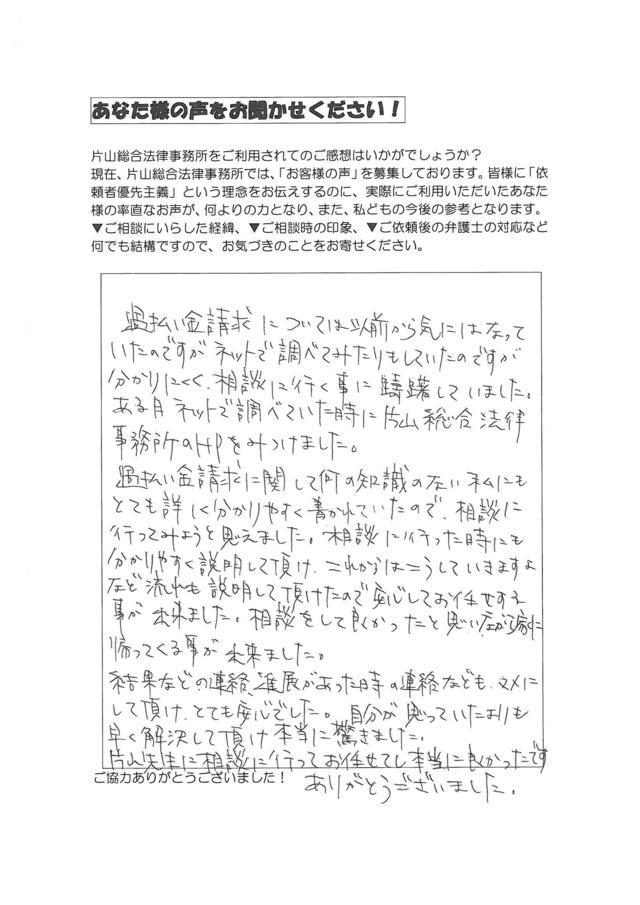 あなた様の声をお聞かせください！
片山総合法律事務所をご利用されてのご感想はいかがでしょうか？
現在、片山総合法律事務所では、「お客様の声」を募集しております。皆様に「依
頼者優先主義」という理念をお伝えするのに、実際にご利用いただいたあなた
様の率直なお声が、何よりの力となり、また、私どもの今後の参考となります。
▼ご相談にいらした経緯、▼ご相談時の印象、▼ご依頼後の弁護士の対応など
何でも結構ですので、お気づきのことをお寄せください。
過払い金請求については以前から気にはなって
いたのですがネットで調べてみたりもしていたのですが
分かりにくく、相談に行く事に躊躇していました。
ある日ネットで調べていた時に片山総合法律
事務所のHPをみつけました。
過払い金請求に関して何の知識のない私にも
とても詳しく分かりやすく書かれていたので、相談に
行ってみようと思えました。相談に行った時にも
分かりやすく説明して頂け、これからはこうしていきますよ
など流れも説明して頂けたので安心してお任せする
事が出来ました。相談をして良かったと思いながら家に
帰ってくる事が出来ました。
結果などの連絡、進展があった時の連絡なども、マメに
して頂け、とても安心でした。自分が思っていたよりも
早く解決して頂け本当に驚きました。
片山先生に相談に行ってお任せてし本当に良かったです
ご協力ありがとうございました！
ありがとうございました。